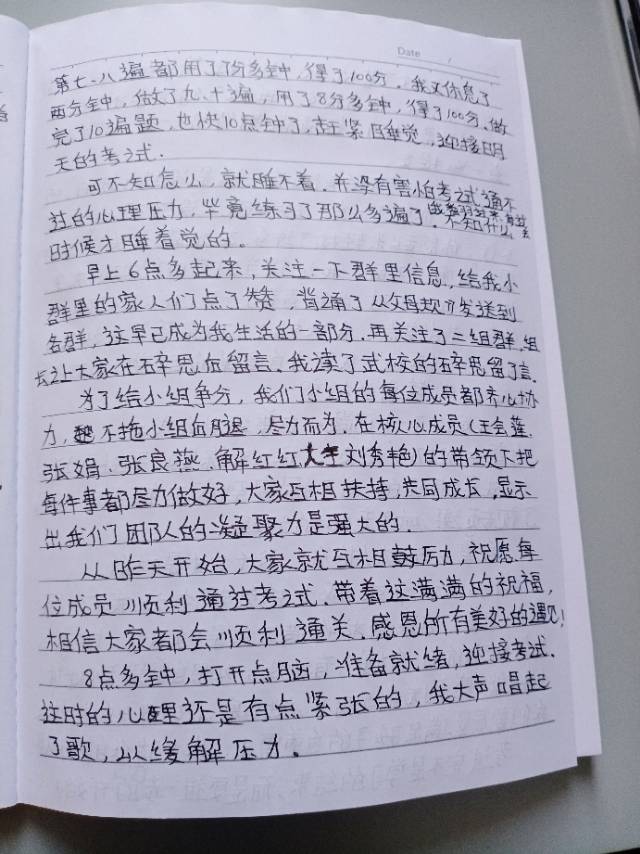 Date
第七、八遍都用了7份多钟，得了100分。我又休息了
两分钟，做了九、十遍，用了8分多钟，得了100分。做
完了10遍题，也快10点钟了，赶紧睡觉，迎接明
天的考试．
可不知怎么，就睡不着．并没有害怕考试通不
过的心理压力，毕竟练习了那么多遍了．不知什么
时候才睡着觉的。
早上6点多起来，关注一下群里信息，给我小
群里的家人们点了赞，背诵了《父母规》发送到
各群，这早已成为我生活的一部分．再关注了二组群，组
长让大家在碎思伍留言．我读了武校的碎思留了言．
为了给小组争分，我们小组的每位成员都齐心协
力，不拖小组后腿，尽力而为．在核心成员（王会莲．
张娟．张良燕．解红红 刘秀艳）的带领下把
每件事都尽力做好，大家互相扶持，共同成长，显示
出我们团队的凝聚力是强大的．
从昨天开始，大家就互相鼓历力，祝愿每
位成员顺利通过考试．带着这满满的祝福，
相信大家都会顺利通关．感恩所有美好的遇见！
8点多钟，打开点脑，准备就绪，迎接考试．
这时的心理还是有点紧张的，我大声唱起
了歌，以缓解压力。